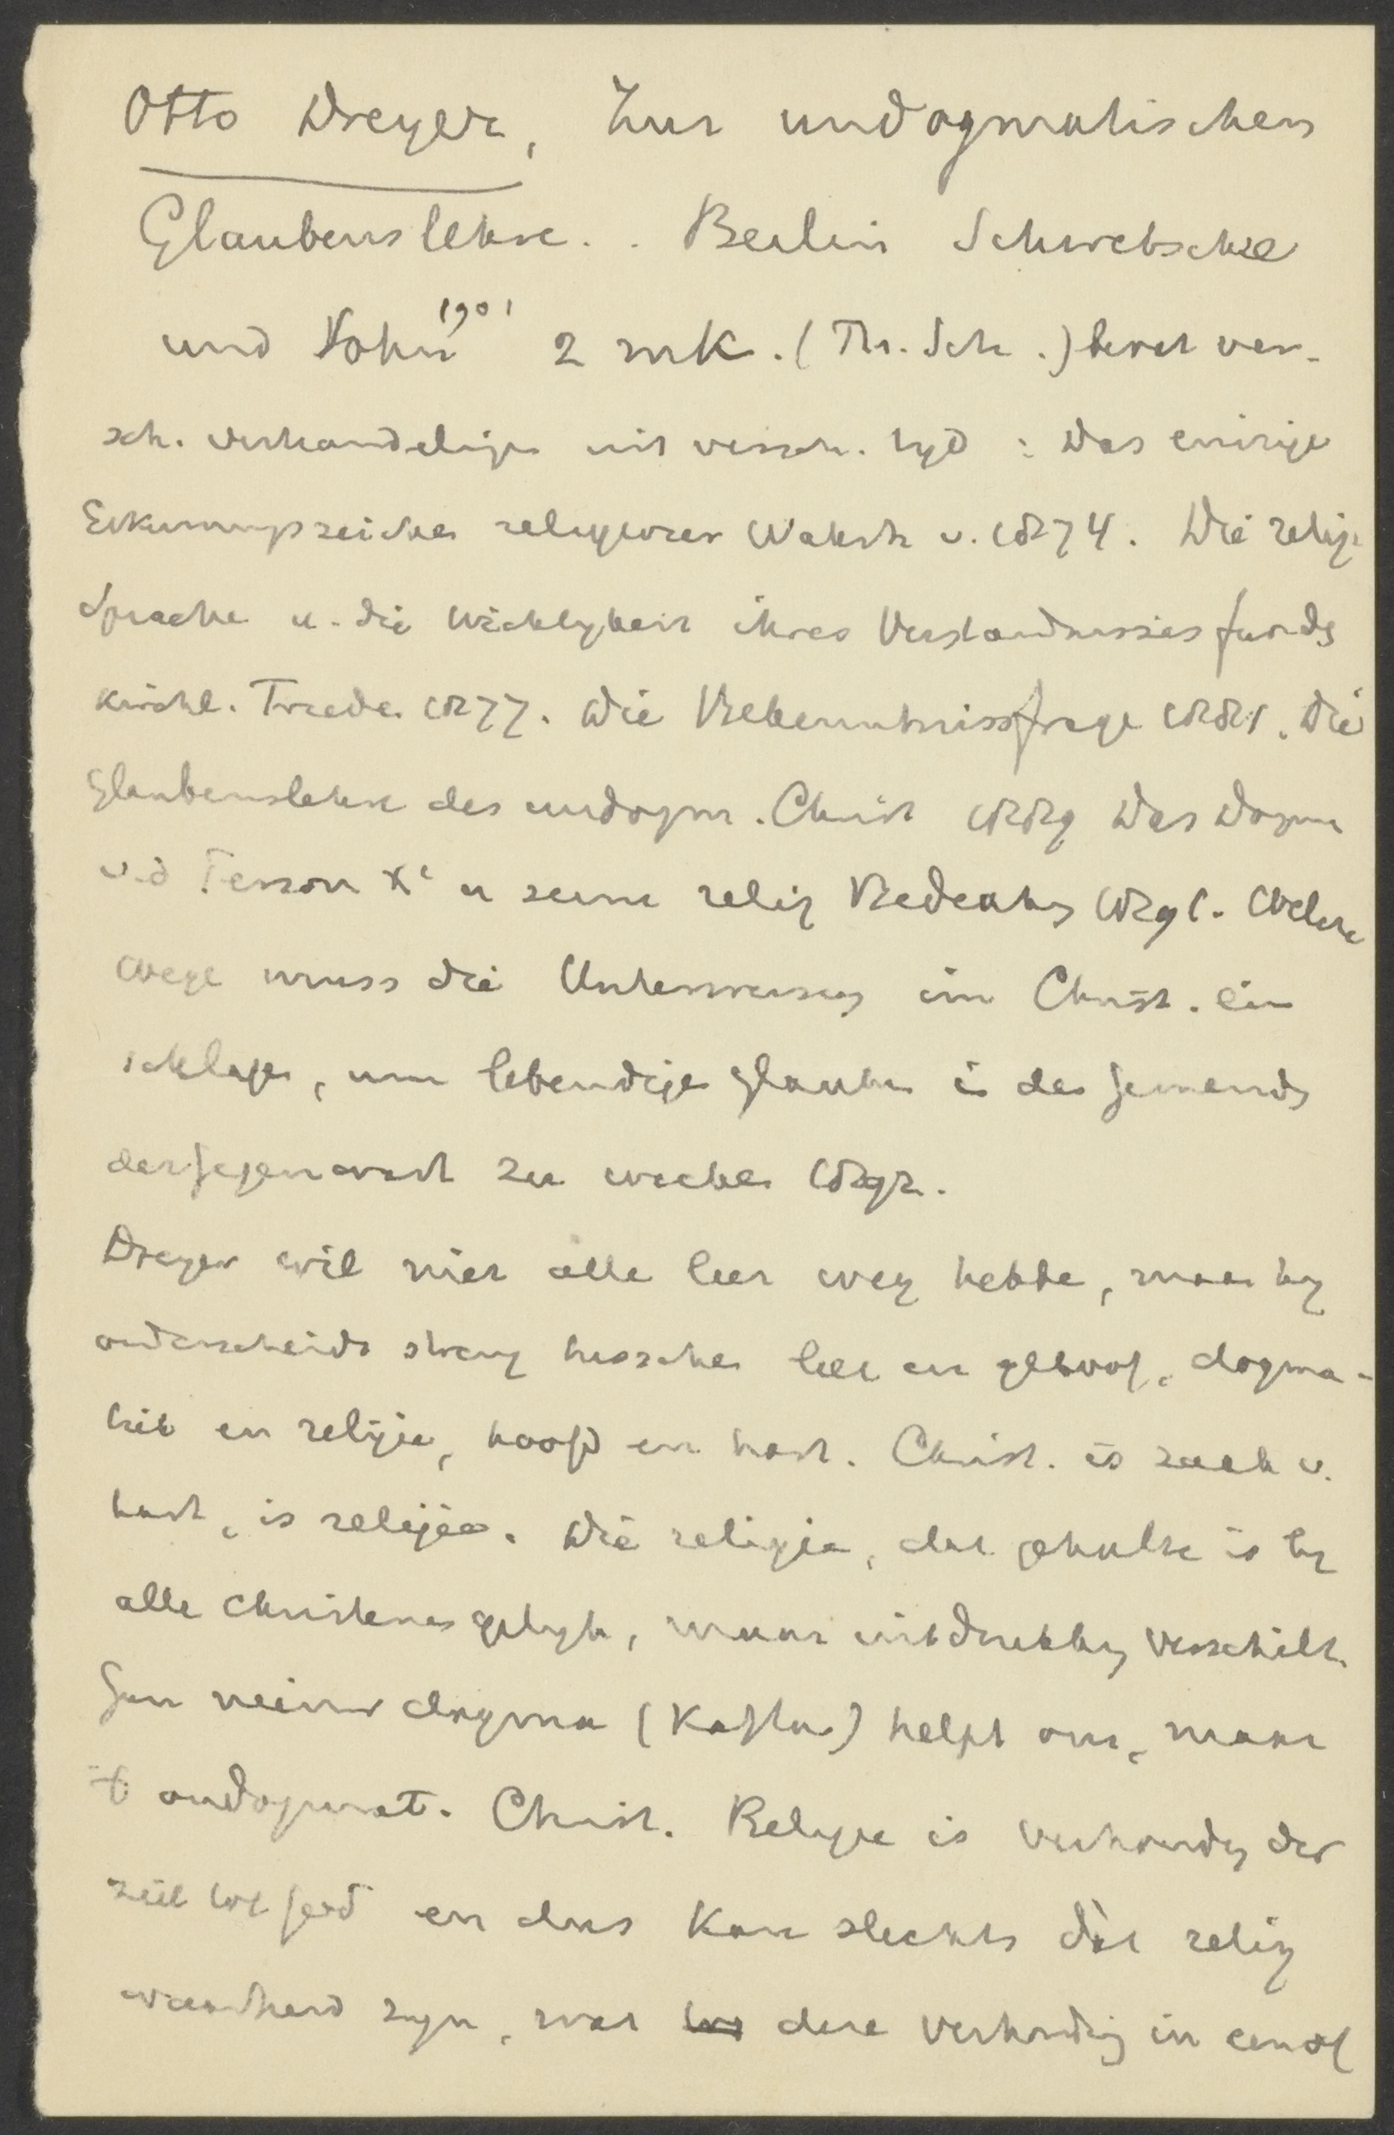 Otto Dreyer, Zur undogmatischen
Glaubenslehre. . Berlin Schwetschke
und Sohn 1901 2 mk. (Th. Sch.) bevat ver-
sch. verhandelinge uit versch. tyd : Das einzige
Erkennungszeichen religiöser Wahrh v. 1874. Die relig.
Sprache u. die Wichtigkeit ihres Verständnisses fur d
kirchl. Friede 1877. Die Bekenntnissfrage 1881. Die
Glaubenslehre des undogm. Christ 1889 Das Dogm
v. d Person Xi u seine relig Bedeutg 1891. Welche
Wege muss die Unterweisung im Christ. ein
schlage, um lebendige Glaube i der Gemeinde
der Gegenwart zu wecke 1892.
Dreyer wil niet alle leer weg hebbe, maar hy
onderscheidt streng tussche leer en geloof, dogma-
tiek en religie, hoofd en hart. Christ. is zaak v.
hart, is religie. Die religie, dat gehalte is by
alle christenen gelyk, maar uitdrukking verschilt.
Geen nieuw dogma (Kaftan) helpt ons, maar
't ondogmat. Christ. Religie is verhouding der
ziel tot God en dus kan slechts dàt relig
waarheid zyn, wat deze verhouding in eenof